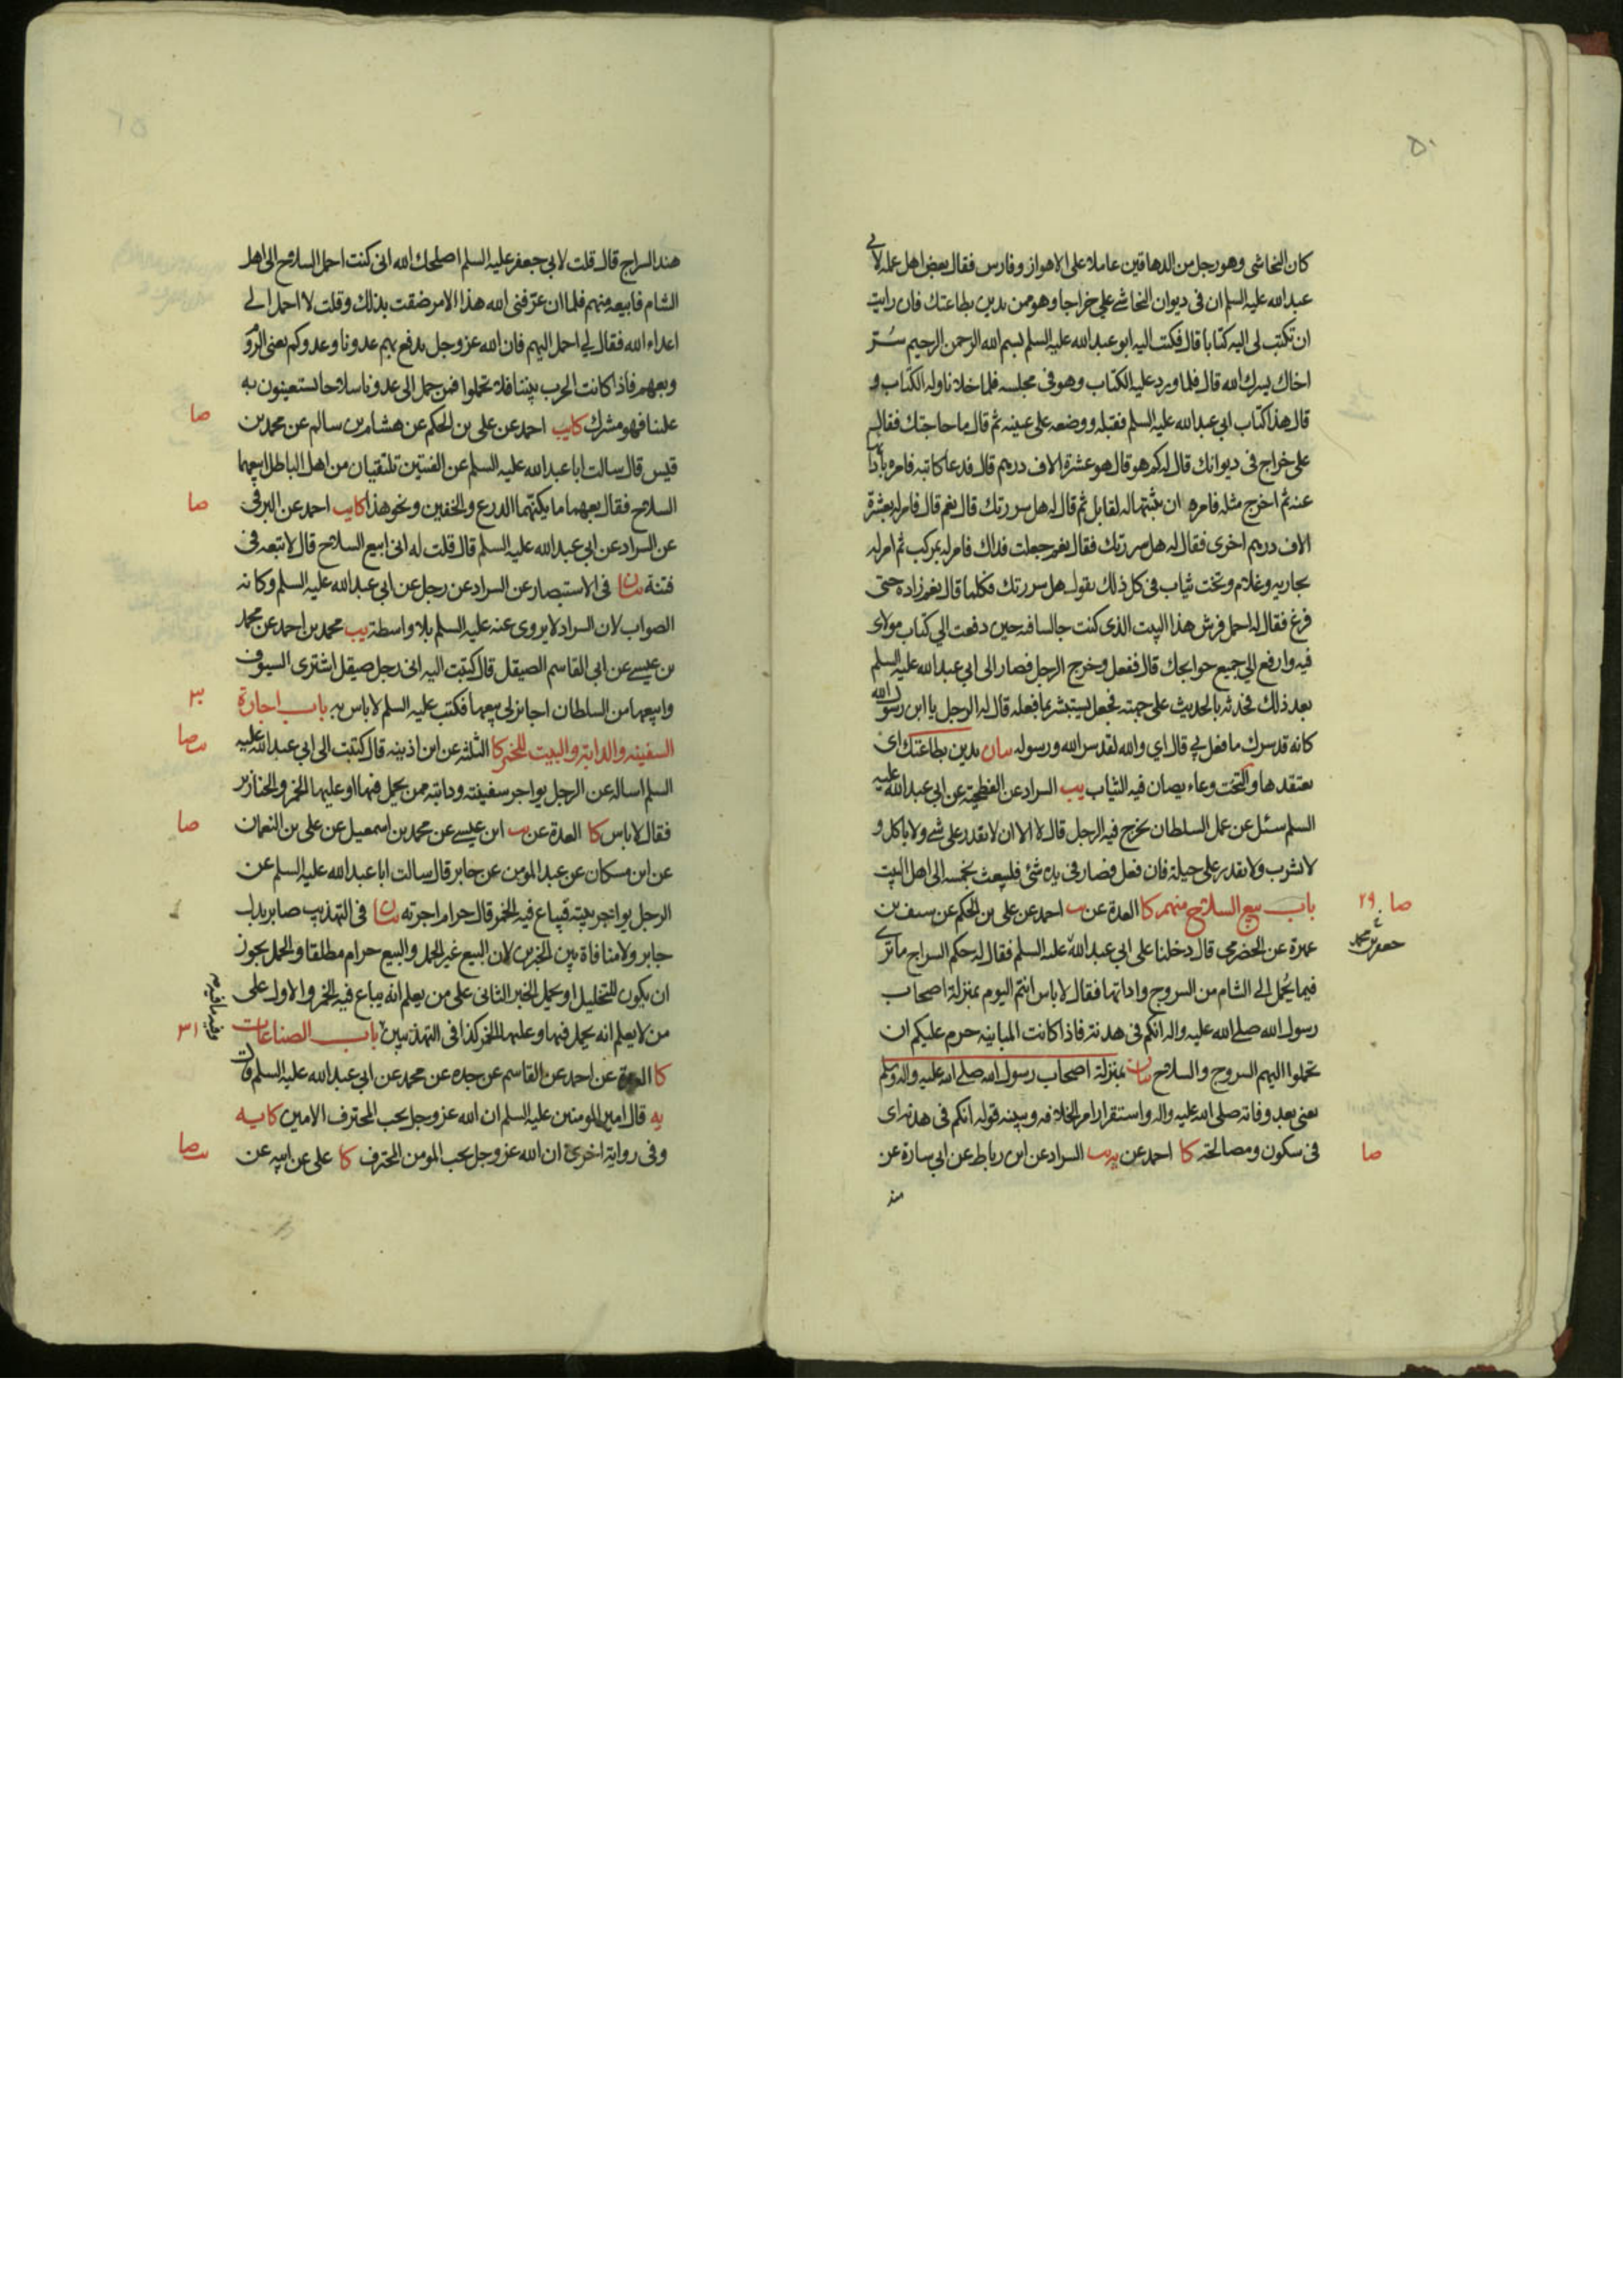 ٥٠
كان النجاشى وهو رجل من الدهاقين عاملا على الاهواز وفارس فقال بعض اهل عمله لابى
عبدالله عليه السلم ان فى ديوان النجاشى على خراجا وهو ممن يدين بطاعتك فان رايت
ان تكتب لى اليه كتابا قال فكتب اليه ابو عبدالله عليه السلم بسم الله الرحمن الرحيم سُرّ
اخاك يسرك الله قال فلما ورد عليه الكتاب وهو فى مجلسه فلما خلا ناوله الكتاب و
قال هذا كتاب ابى عبدالله عليه السلم فقبله ووضعه على عينيه ثم قال ما حاجتك فقال
على خراج فى ديوانك قال له كم هو قال هو عشرة الاف درهم قال فدعا كاتبه فامره بادا
عنه ثم اخرج مثله فامره ان يثبتها له لقابل ثم قال له هل سررتك قال نعم قال فامر له بعشرة
الاف درهم اخرى فقال له هل سررتك فقال نعم جعلت فداك فامر له بمركب ثم امر له
بجارية وغلام وتخت ثياب فى كل ذلك يقول هل سررتك فكلما قال نعم زاده حتى
فرغ فقال له احمل فرش هذا البيت الذى كنت جالسا فيه حين دفعت الى كتاب مولاى
فيه وارفع الى جميع حوايجك قال ففعل وخرج الرجل فصار الى ابى عبدالله عليه السلم
بعد ذلك فحدثه بالحديث على جهته فجعل يستبشر بما فعله قال له الرجل يا ابن رسول الله
كانه قد سرك ما فعل بى قال اى والله لقد سر الله ورسوله بيان يدين بطاعتك اى
يعتقدها والتخت وعاء يصان فيه الثياب يب السراد عن الفطحية عن ابى عبدالله عليه
السلم سئل عن عمل السلطان يخرج فيه الرجل قال لا الا ان لا يقدر على شى ولا ياكل و
لا يشرب ولا يقدر على حيلة فان فعل فصار فى يده شئ فليبعث بخمسه الى اهل البيت
صا ٢٩ باب بيع السلاح منهم كا العدة عن يب احمد عن على بن الحكم عن سيف بن
عميرة عن الحضرمى قال دخلنا على ابى عبدالله عليه السلم فقال له حكم السراج ما ترى
فيما يُحمل الى الشام من السروج واداتها فقال لا باس انتم اليوم بمنزلة اصحاب
رسول الله صلى الله عليه واله انكم فى هدنة فاذا كانت المباينة حرم عليكم ان
تحملوا اليهم السروج والسلاح بيان بمنزلة اصحاب رسول الله صلى الله عليه واله وسلم
يعنى بعد وفاته صلى الله عليه واله واستقرار امر الخلافة وبينه قوله انكم فى هدنة اى
صا فى سكون ومصالحة كا احمد عن يب السراد عن ابن رباط عن ابى سارة عن
هند السراج قال قلت لابى جعفر عليه السلم اصلحك الله انى كنت احمل السلاح الى اهل
الشام فابيعه منهم فلما ان عرّفنى الله هذا الامر ضقت بذلك وقلت لا احمل الى
اعداء الله فقال لى احمل اليهم فان الله عز وجل يدفع بهم عدونا وعدوكم يعنى الروم
وبعهم فاذا كانت الحرب بيننا فلا تحملوا فمن حمل الى عدونا سلاحا يستعينون به
صا علينا فهو مشرك كا يب احمد عن على بن الحكم عن هشام بن سالم عن محمد بن
قيس قال سالت ابا عبدالله عليه السلم عن الفئتين تلتقيان من اهل الباطل ابيعهما
صا السلاح فقال بعهما ما يكنهما الدرع والخفين ونحو هذا كا يب احمد عن البرقى
عن السراد عن ابى عبدالله عليه السلم قال قلت له انى ابيع السلاح قال لا تبعه فى
فتنة بيان فى الاستبصار عن السراد عن رجل عن ابى عبدالله عليه السلم وكانه
الصواب لان السراد لا يروى عنه عليه السلم بلا واسطة يب محمد بن احمد عن محمد
بن عيسى عن ابى القاسم الصيقل قال كتبت اليه انى رجل صيقل اشترى السيوف
٣٠ وابيعها من السلطان اجائز لى بيعها فكتب عليه السلم لا باس به باب اجارة
صا السفينة والدابة والبيت للخمر كا الثلثة عن ابن اذينة قال كتبت الى ابى عبدالله عليه
السلم اساله عن الرجل يواجر سفينته ودابته ممن يحمل فيها او عليها الخمر والخنازير
صا فقال لا باس كا العدة عن يب ابن عيسى عن محمد بن اسمعيل عن على بن النعمان
عن ابن مسكان عن عبد المومن عن جابر قال سالت ابا عبدالله عليه السلم عن
الرجل يواجر بيته فيباع فيه الخمر قال حرام اجرته بيان فى التهذيب صابر بدل
جابر ولا منافاة بين الخبرين لان البيع غير الحمل والبيع حرام مطلقا والحمل يجوز
ان يكون للتخليل او يحمل الخبر الثانى على من يعلم انه يباع فيه الخمر والاول على
٣١ من لا يعلم انه يحمل فيها وعليها الخمر كذا فى التهذيبين باب الصناعات
كا العدة عن احمد عن القاسم عن جده عن محمد عن ابى عبدالله عليه السلم قال
يه قال امير المومنين عليه السلم ان الله عز وجل يحب المحترف الامين كا يه
صا وفى رواية اخرى ان الله عز وجل يحب المومن المحترف كا على عن ابيه عن